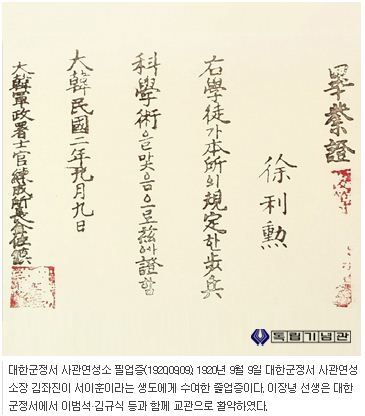 畢業證
徐利勳
右學徒가本所의規定한步兵
科學術을맞음으로玆에證함
大韓民國二年九月九日
大韓軍政署士官練成所長金佐鎭
독립기념관
대한군정서 사관연성소 필업증(1920.09.09). 1920년 9월 9일 대한군정서 사관연성
소장 김좌진이 서이훈이라는 생도에게 수여한 졸업증이다. 이장녕 선생은 대한
군정서에서 이범석·김규식 등과 함께 교관으로 활약하였다.